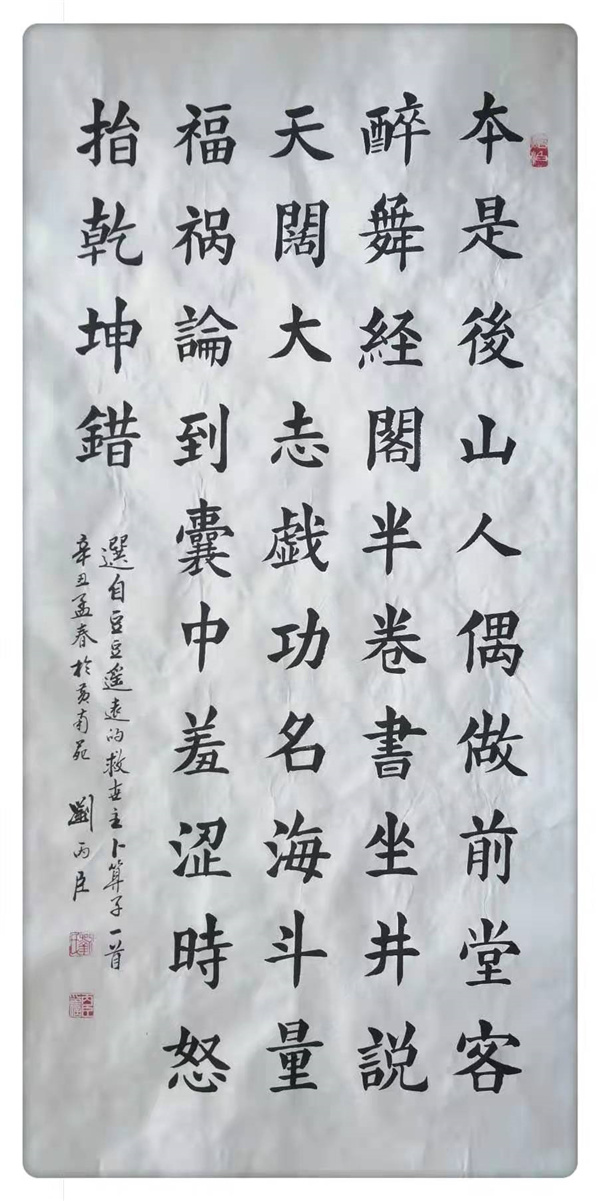 本是後山人偶做前堂客
醉舞経閣半卷書坐井説
天闊大志戯功名海斗量
福祸論到囊中羞涩時怒
抬乾坤錯
選自豆豆遥遠的救世主卜算子一首
辛丑孟春於黄南苑 劉丙臣